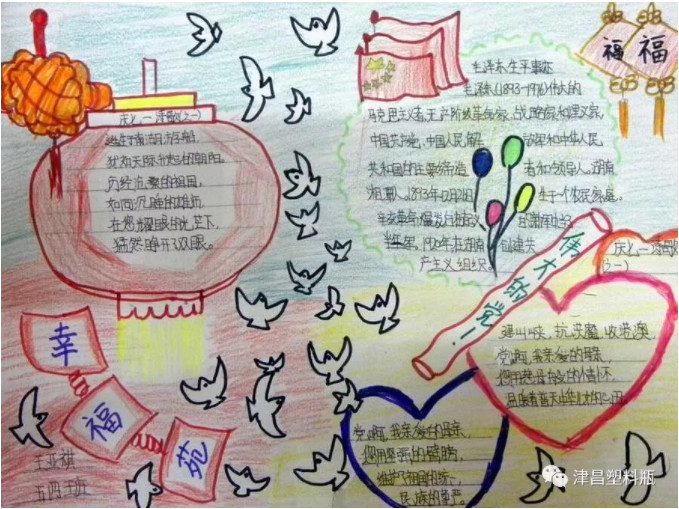 福
福
庆七一诗歌(之一)
诞生于南湖的航船,
犹如天际
历经沉
的祖国,
如同沉睡的雄狮,
在您
耀眼的光芒下,
猛然睁开双眼。
幸
福
苑
王亚
五四班
毛泽东生平事迹
毛泽东(1893-1976)伟大的
马克思主义者,无产阶级革命家、战略家和理论家,
中国共产党、中国人民解放军和中华人民
共和国的主要缔造者和领导人。湖南
湘潭人。1893年12月26日生于一个农民家庭。
辛亥革命爆发后
1920年在湖南创建共
产主义组织。
伟大的党!
庆七一诗歌
(之一)
抗洪魔,收港澳,
党啊,亲爱的母亲,
您用慈母般的情怀,
温暖着
党啊,亲爱的母亲,
您用坚强的臂膀,
维护
民族的尊严。
津昌塑料瓶